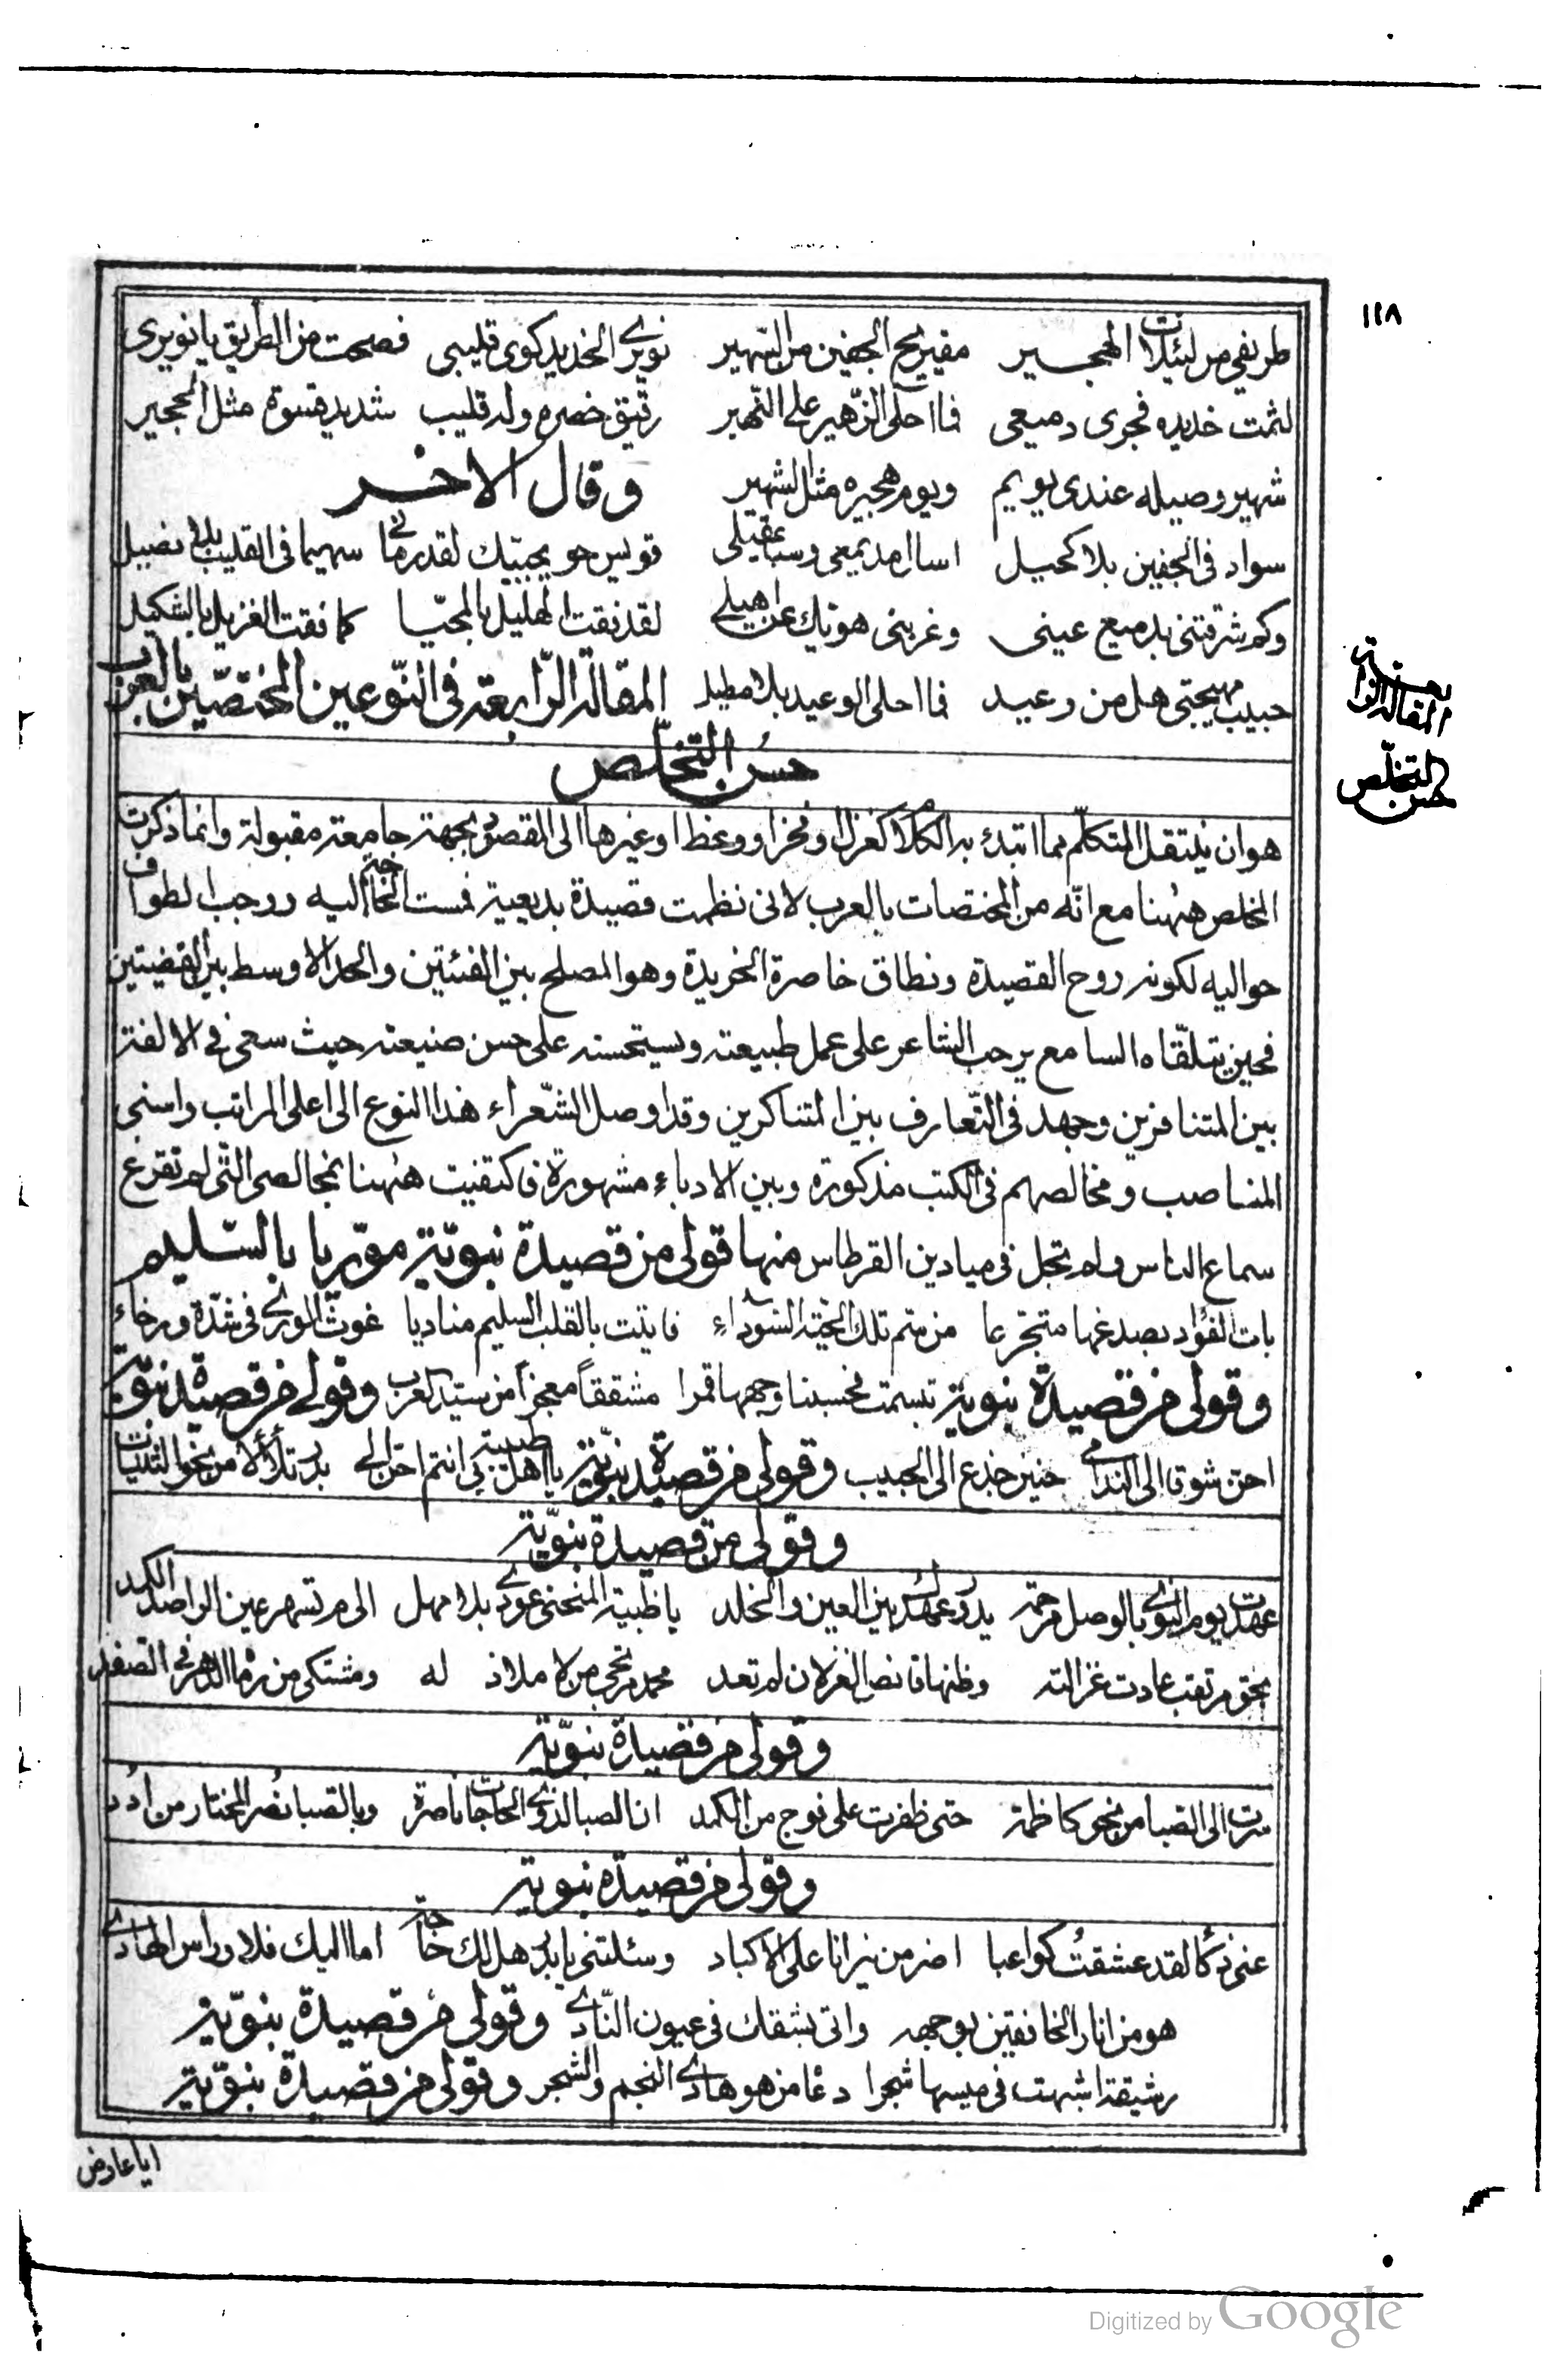 ١١٨
طريفي من لييلات الهجير مقيريح الجفين من السهير نويري الخديد كوى قليبي فصحت من الطريق يا نويرى
لثمت خديده فجرى دميعى فما احلى الزهير على النهير رقيق خصره وله قليب شديد قسوة مثل الحجير
شهير وصيله عندى يويم ويوم هجيره مثل الشهير وقال الاخر
سواد فى الجفين بلا كحيل اسال مديمعى وسبا عقيلى قويس حويجبيك لقد رمانى سهيما فى القليب بلا نصيل
وكم شرقتنى بدميع عينى وغربنى هويك عن اهيلى لقد نقت الهليل بالمحيّا كما نقت الغزيل بالشكيل
حبيب مهيجتى هل من وعيد فما احلى الوعيد بلا مطيل المقالة الرّابعة فى النّوعين المختصّين بالعرب
المقالة الرابعة
حسن التخلّص
حسن التخلّص
هو ان ينتقل المتكلّم مما ابتدئ به الكلام كغزل او فخر او وعظ او غيرها الى المقصود بجهة جامعة مقبولة وانما ذكرت
المخلص ههنا مع انّه من المختصات بالعرب لانى نظمت قصيدة بديعية فمست الحاجة اليه ووجب الطواف
حواليه لكونه روح القصيدة ونطاق خاصرة الخريدة وهو المصلح بين الفئتين والحد الاوسط بين القضيتين
فحين يتلقّاه السامع يرحب الشاعر على عمل طبيعته ويستحسنه على حسن صنيعته حيث سعى فى الالفة
بين المتنافرين وجهد فى التّعارف بين المتناكرين وقد اوصل الشّعراء هذا النوع الى اعلى المراتب واسنى
المناصب ومخالصهم فى الكتب مذكورة وبين الادباء مشهورة فاكتفيت ههنا بمخالصى الّتى لم تقرع
سماع الناس ولم تجل فى ميادين القرطاس منها قولى من قصيدة نبويّة مورّيا بالسّليم
بات الفؤاد بصدغها متجرعا من سم تلك الحيّة السّوداء فاتيت بالقلب السليم مناديا غوث الورى فى شدّة ورخاء
وقولى من قصيدة نبويّة تبسمت فحسبنا وجهها قمرا مشققاً معجزاً من سيد العرب وقولى من قصيدة نبويّة
احن شوقا الى الندامى حنين جذع الى الحبيب وقولى من قصيدة نبويّة يا اهل طيبة انتم احن الى بدر تلألأ من نحو الثنيات
وقولى من قصيدة نبويّة
عهدت يوم النوى بالوصل مرحمة يدوم عهدك بين العين والخلد يا ظبية المنحنى عودى بلا مهل الى م تسهر عين الراصد الكمد
بحق مرتقب عادت غزالته وظنها قانص الغزلان لم تعد محمد مرتجى من لا ملاذ له ومشتكى من رماه الدهر فى الصفد
وقولى من قصيدة نبويّة
سرت الى الصبا من نحو كاظمة حتى ظفرت على فوج من الكمد ان الصبا لذوى الحاجات ناصرة وبالصبا نصر المختار من ادد
وقولى من قصيدة نبوية
لقد عشقت كواعبا اضر من نيرانا على الاكباد وسئلتنى يا بدر هل لك حاجة اما اليك فلا وراس الهادى
هو من انار الخافقين بوجهه واتى بشقك فى عيون النّادى وقولى من قصيدة نبويّة
رشيقة اشبهت فى ميسها شجرا دعا من هو هادى النجم والشجر وقولى من قصيدة نبويّة
ايا عارض
Digitized by Google